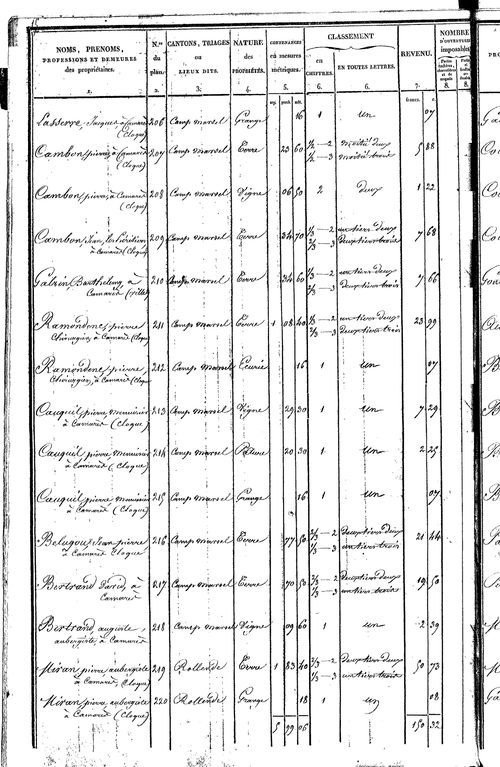 NOMS, PRENOMS, PROFESSIONS ET DEMEURES des propriétaires. 1.
N.os du plan. 2.
CANTONS, TRIAGES ou LIEUX DITS. 3.
NATURE des PROPRIÉTÉS. 4.
CONTENANCES en mesures métriques. 5.
CLASSEMENT
en CHIFFRES. 6.
EN TOUTES LETTRES. 6.
REVENU. 7.
NOMBRE D'OUVERTURES imposables
8. 8.
francs. c.
Lasserre, Jacques à Camarès 206 Camp marsel Grange 16 1 un 07
(Cloque)
Cambon, pierre, à Camarès 207 Camp marsel Terre 23 60 1/2 — 2 moitié deux 5 88
(Cloque) 1/2 — 3 moitié trois
Cambon, pierre, à Camarès 208 Camp marsel Vigne 06 50 2 deux 1 22
(Cloque)
Cambon, Jean, 209 Camp marsel Terre 34 70 1/3 — 2 un tiers deux 7 68
à Camarès (Cloque) 2/3 — 3 deux tiers trois
Galzin, Barthelemy, à 210 Camp marsel Terre 34 60 1/3 — 2 un tiers deux 7 66
Camarès (ville) 2/3 — 3 deux tiers trois
Ramondenc, pierre 211 Camp marsel Terre 1 08 40 1/3 — 2 un tiers deux 23 99
Chirurgien, à Camarès (Cloque 2/3 — 3 deux tiers trois
Ramondenc, pierre, 212 Camp marsel Ecurie 16 1 un 07
Chirurgien, à Camarès (Cloque
Cauquil, pierre, menuisier 213 Camp marsel Vigne 29 30 1 un 7 29
à Camarès (Cloque)
Cauquil, pierre, menuisier 214 Camp marsel Pature 20 30 1 un 2 25
à Camarès (Cloque)
Cauquil, pierre menuisier 215 Camp marsel Grange 16 1 un 07
à Camarès (Cloque)
Belugou, Jean pierre 216 Camp marsel Terre 77 50 2/3 — 2 deux tiers deux 21 44
à Camarès Cloque 1/3 — 3 un tiers trois
Bertrand David, à 217 Camp marsel Terre 70 50 2/3 — 2 deux tiers deux 19 50
Camarès 1/3 — 3 un tiers trois
Bertrand auguste, 218 Camp marsel Vigne 09 60 1 un 2 39
aubergiste, à Camarès
Miran, pierre, aubergiste 219 Rollende Terre 1 83 40 2/3 — 2 deux tiers deux 50 73
à Camarès, (Cloque) 1/3 — 3 un tiers trois
Miran, pierre, aubergiste 220 Rollende Grange 18 1 un 08
à Camarès (Cloque)
5 99 06 150 32